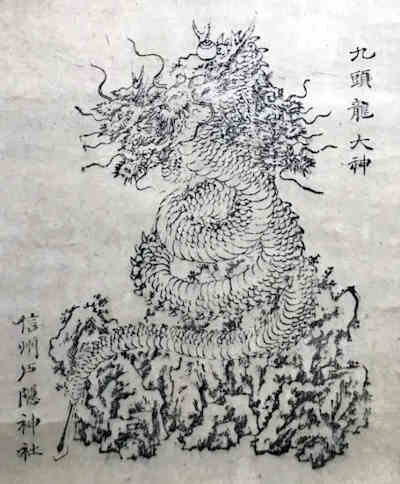 九頭龍大神
信州戸隠神社